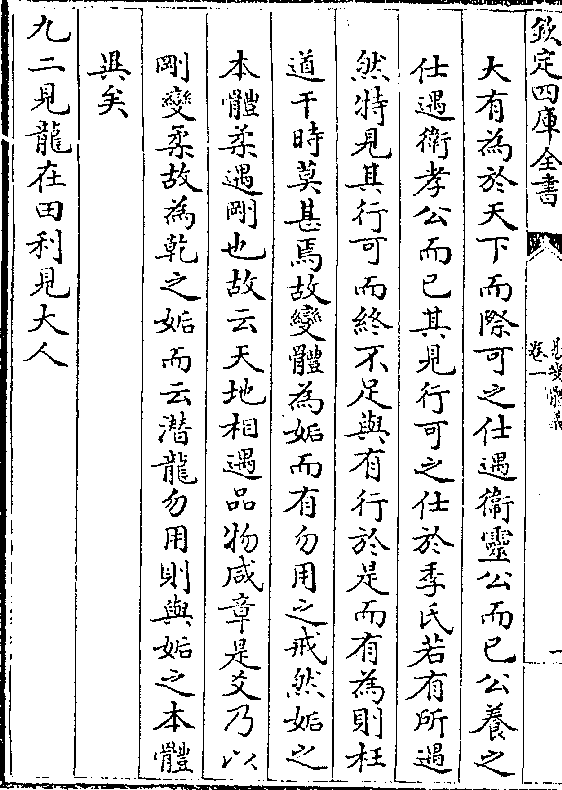 欽定四庫全書
易變體義
卷一
一
大有為於天下而際可之仕遇衞靈公而已公養之
仕遇衛孝公而已其見行可之仕於季氏若有所遇
然特見其行可而終不足與有行於是而有為則枉
道干時莫甚焉故變體為姤而有勿用之戒然姤之
本體柔遇剛也故云天地相遇品物咸章是爻乃以
剛變柔故為乾之姤而云潛龍勿用則與姤之本體
異矣
九二見龍在田利見大人